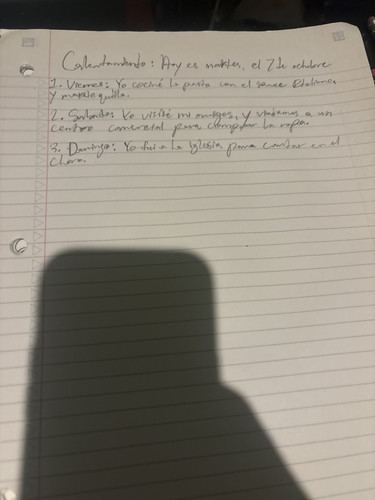 Calentamiento: Hoy es martes, el 7 de octubre
1. Viernes: Yo cociné la pasta con el sauce
y mantequilla.
2. Sabados Yo visité mi amigos, y a un
centro comercial para comprar la ropa.
3. Domingo: Yo fui a la Iglesia para cantar en el
choro.